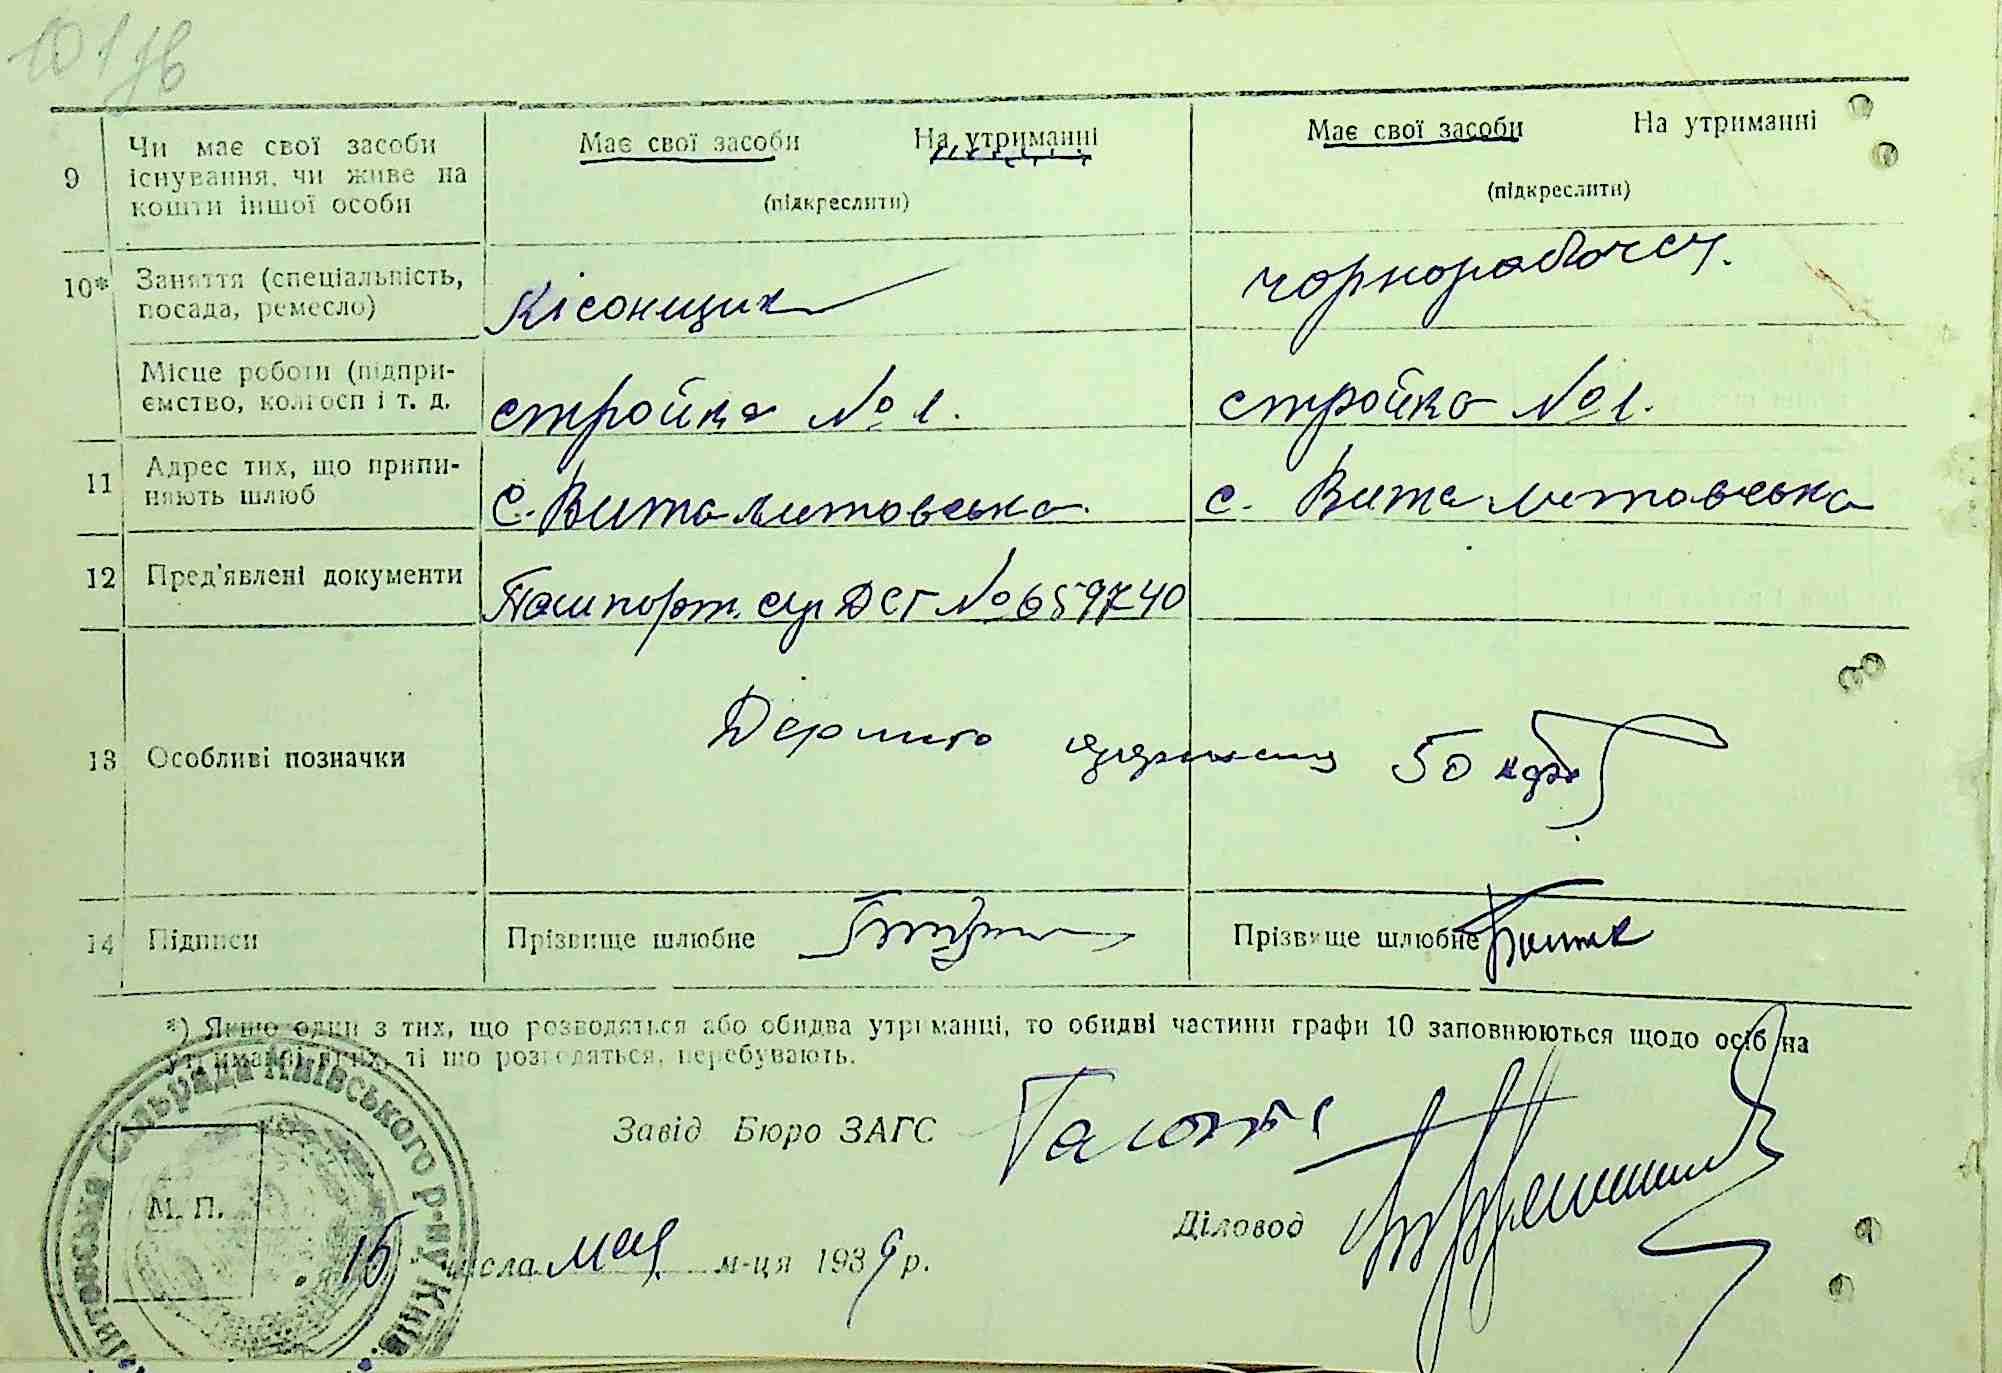 9
Чи має свої засоби
існування, чи живе на
кошти іншої особи
Має свої засоби На утриманні
(підкреслити)
Має свої засоби На утриманні
(підкреслити)
10*
Заняття (спеціальність,
посада, ремесло)
Кісонщик
чорнорабочая.
Місце роботи (підпри-
ємство, колгосп і т. д.
стройка №1.
стройка №1.
11
Адрес тих, що припи-
няють шлюб
с. Вита литовська
с. Вита литовська
12
Пред'явлені документи
Пашпорт. сер ДСГ № 659740
13
Особливі позначки
50
14
Підписи
Прізвище шлюбне
Прізвище шлюбне
*) Якщо один з тих, що розводяться або обидва утриманці, то обидві частини графи 10 заповнюються щодо осіб на
утриманні яких ті що розводяться, перебувають.
Завід Бюро ЗАГС
Діловод
М. П.
15 числа мая м-ця 1939 р.
Литовська Сільрада Київського р-ну, Київ.